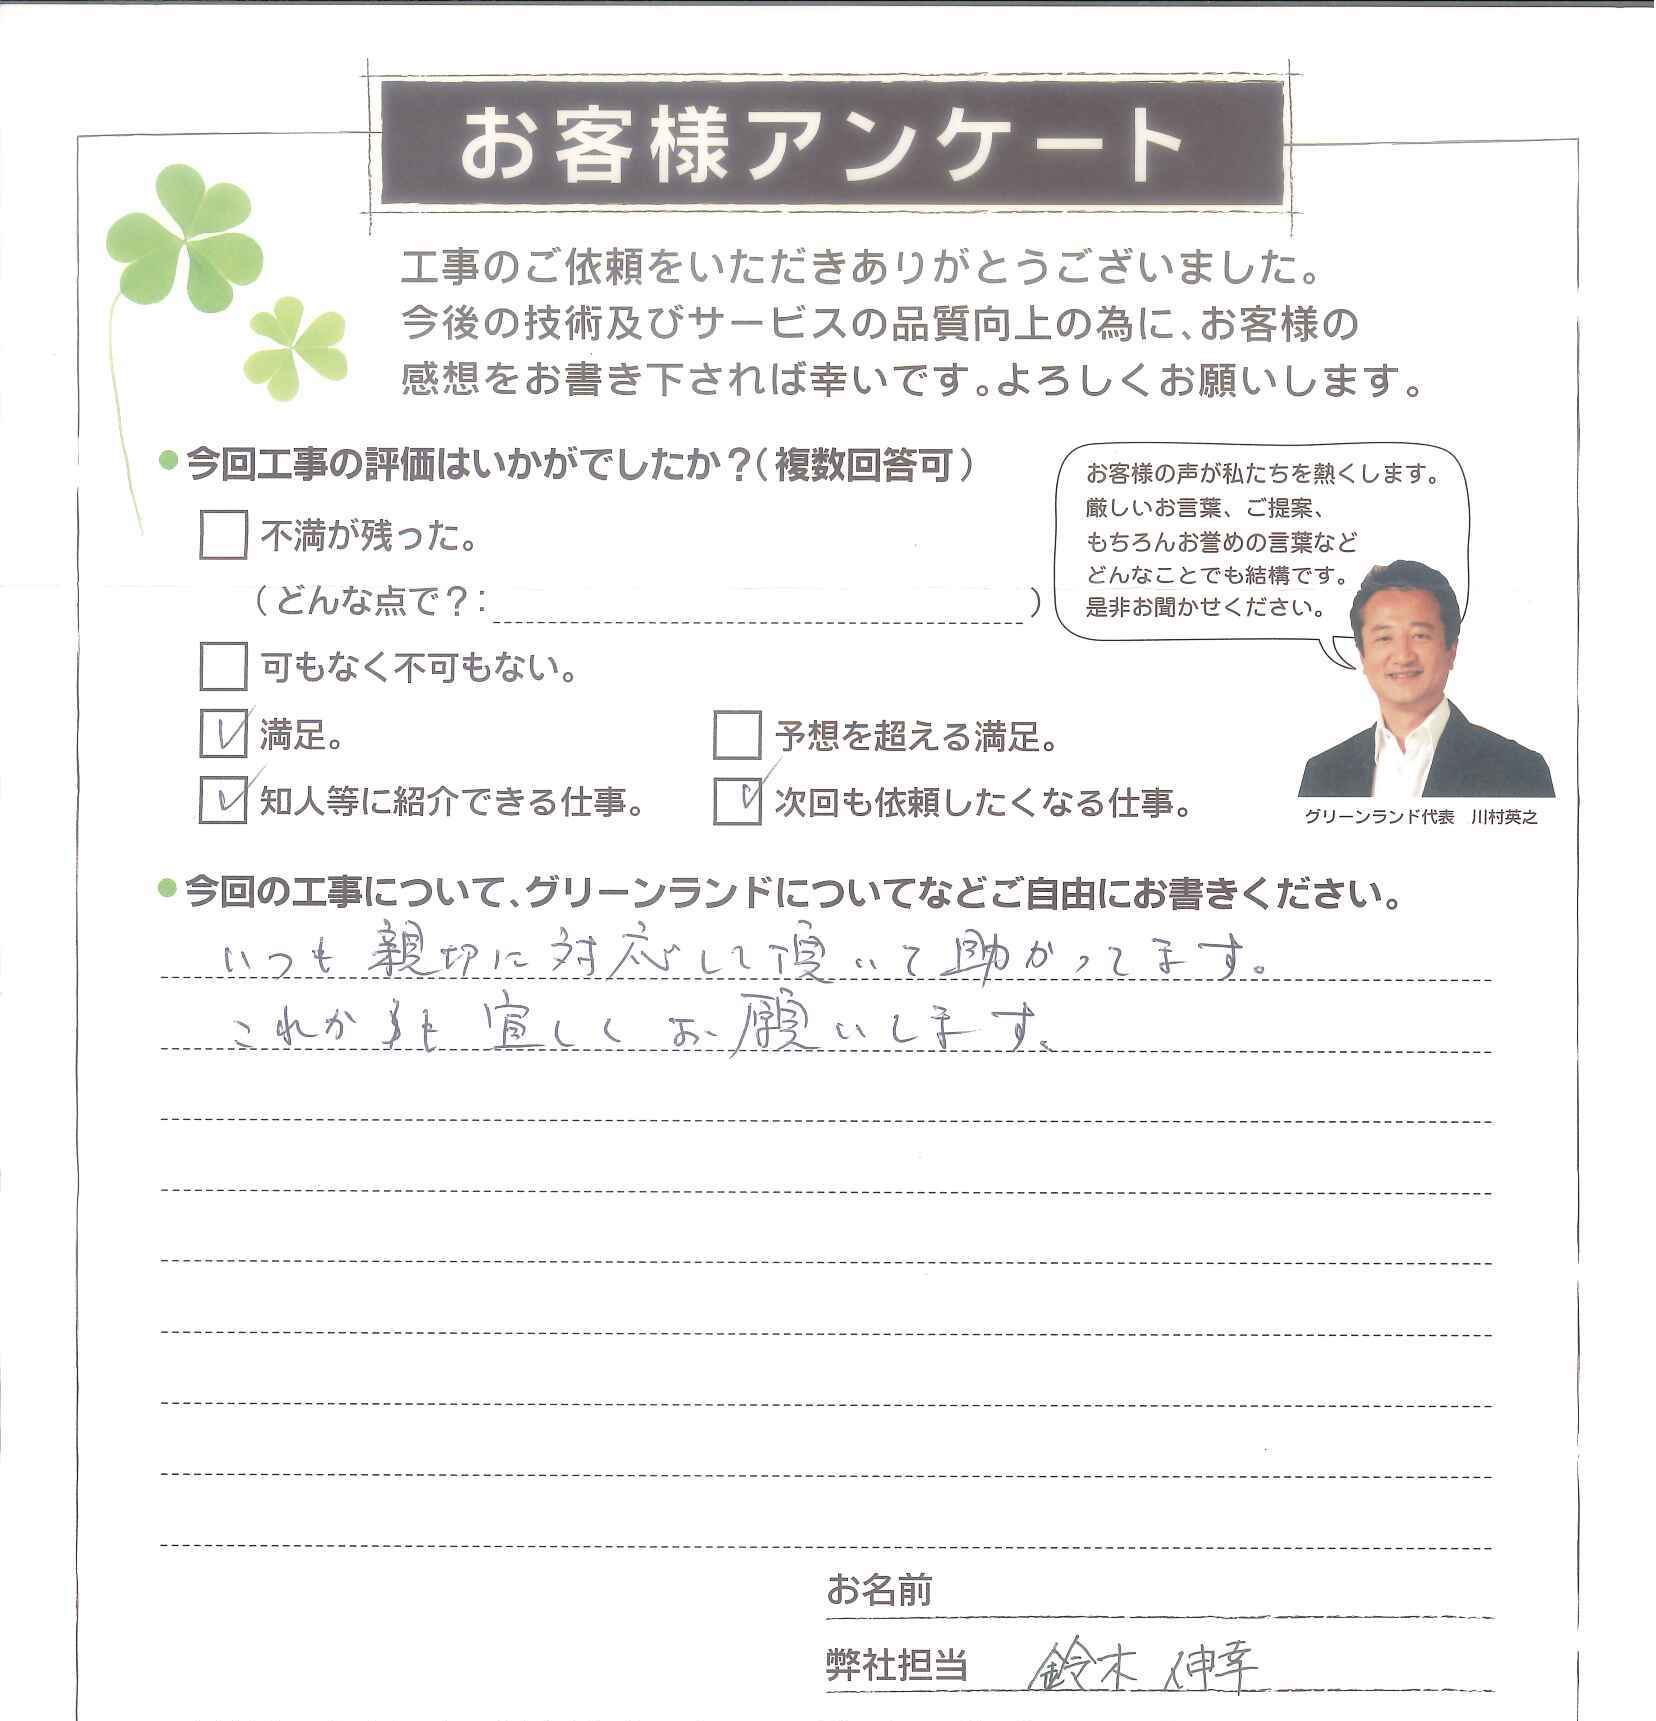 お客様アンケート
工事のご依頼をいただきありがとうございました。
今後の技術及びサービスの品質向上の為に、お客様の
感想をお書き下されば幸いです。よろしくお願いします。
今回工事の評価はいかがでしたか？（複数回答可）
不満が残った。
（どんな点で？：　）
可もなく不可もない。
満足。
予想を超える満足。
知人等に紹介できる仕事。
次回も依頼したくなる仕事。
お客様の声が私たちを熱くします。
厳しいお言葉、ご提案、
もちろんお誉めの言葉など
どんなことでも結構です。
是非お聞かせください。
グリーンランド代表　川村英之
今回の工事について、グリーンランドについてなどご自由にお書きください。
いつも親切に対応して頂いて助かってます。
これからも宜しくお願いします。
お名前
弊社担当　鈴木 伸幸